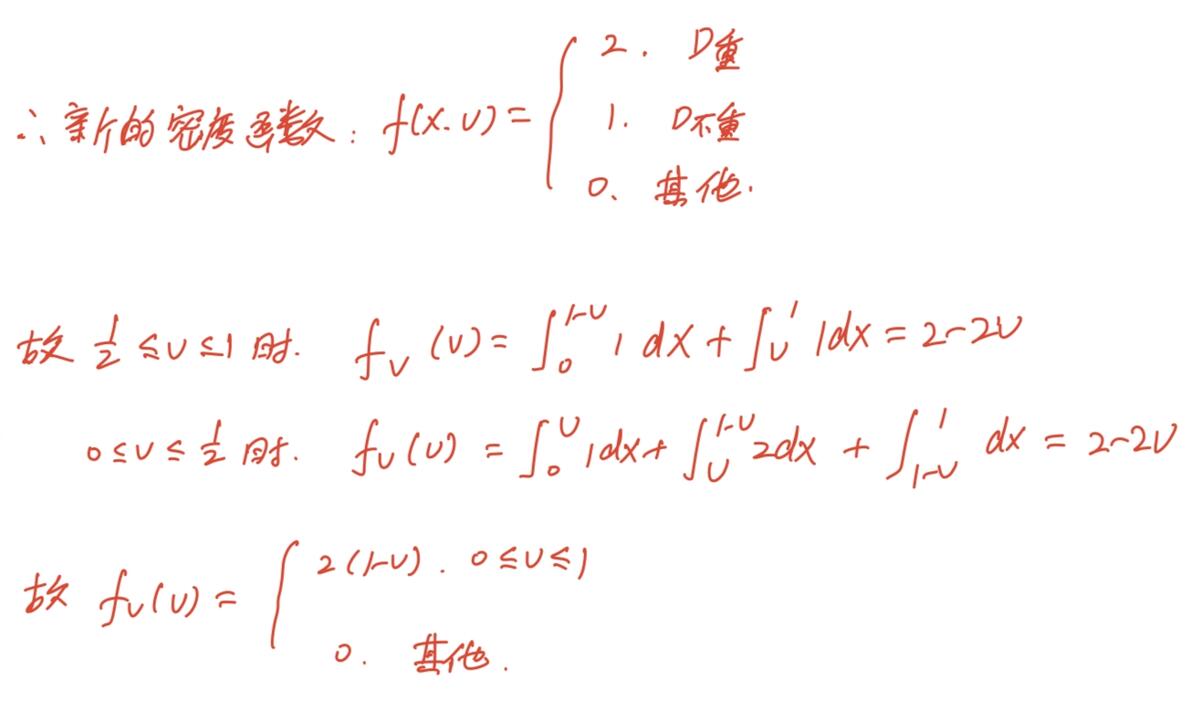 ∴新的密度函数: f(x.υ)= { 2. D重
1. D不重
0、其他.
故 1/2 ≤υ≤1 时. fᵥ(υ)= ∫₀^{1-υ} 1 dx + ∫_υ^1 1dx = 2-2υ
0≤υ≤ 1/2 时. fᵥ(υ) = ∫₀^υ 1dx+ ∫_υ^{1-υ} 2dx + ∫_{1-υ}^1 dx = 2-2υ
故 fᵥ(υ)= { 2(1-υ). 0≤υ≤1
0. 其他.